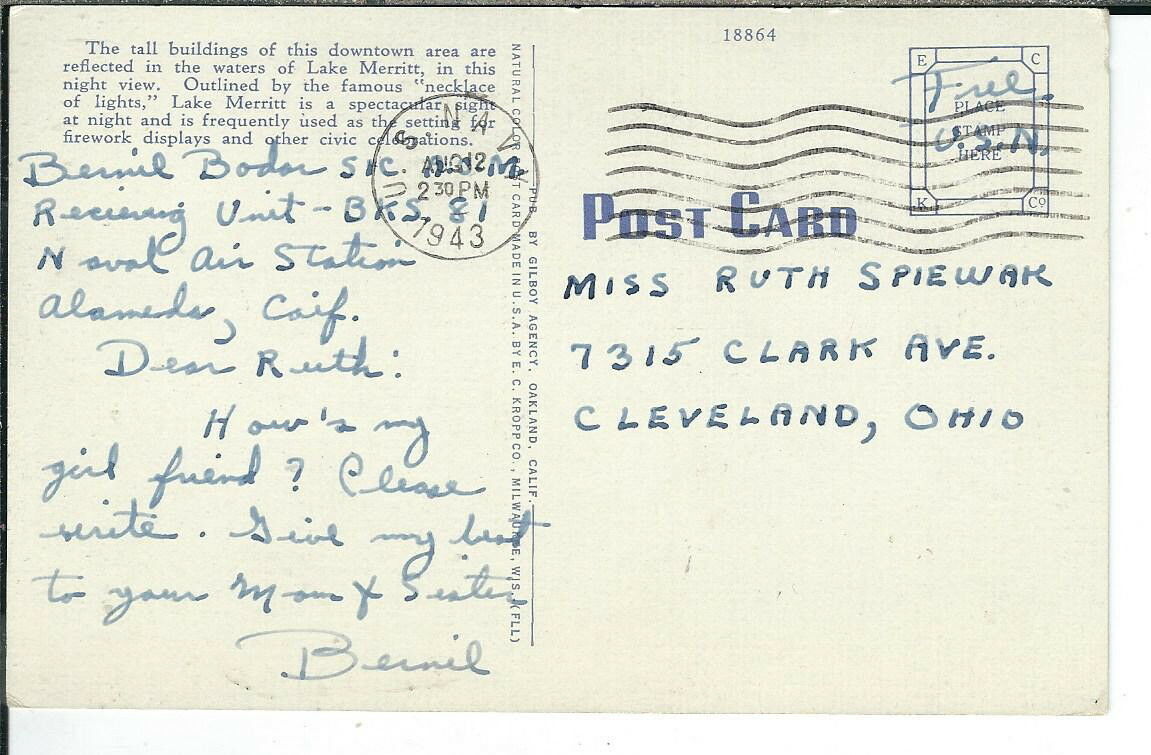 18864
The tall buildings of this downtown area are
reflected in the waters of Lake Merritt, in this
night view. Outlined by the famous "necklace
of lights," Lake Merritt is a spectacular sight
at night and is frequently used as the setting for
firework displays and other civic celebrations.
Bernil Bodar S1C.
Recieving Unit - BKS. 81
Naval Air Station
Alameda, Caif.
Dear Ruth:
How's my
girl friend? Please
write. Give my best
to your Mom & Sister
Bernil
U.S. NAVY
AUG 12
2 30 PM
1943
NATURAL COLOR POST CARD MADE IN U.S.A. BY E. C. KROPP CO., MILWAUKEE, WIS. (FLL)
PUB. BY GILBOY AGENCY, OAKLAND, CALIF.
E C
Free.
PLACE
STAMP
HERE
U.S.N.
K Co
POST CARD
MISS RUTH SPIEWAK
7315 CLARK AVE.
CLEVELAND, OHIO